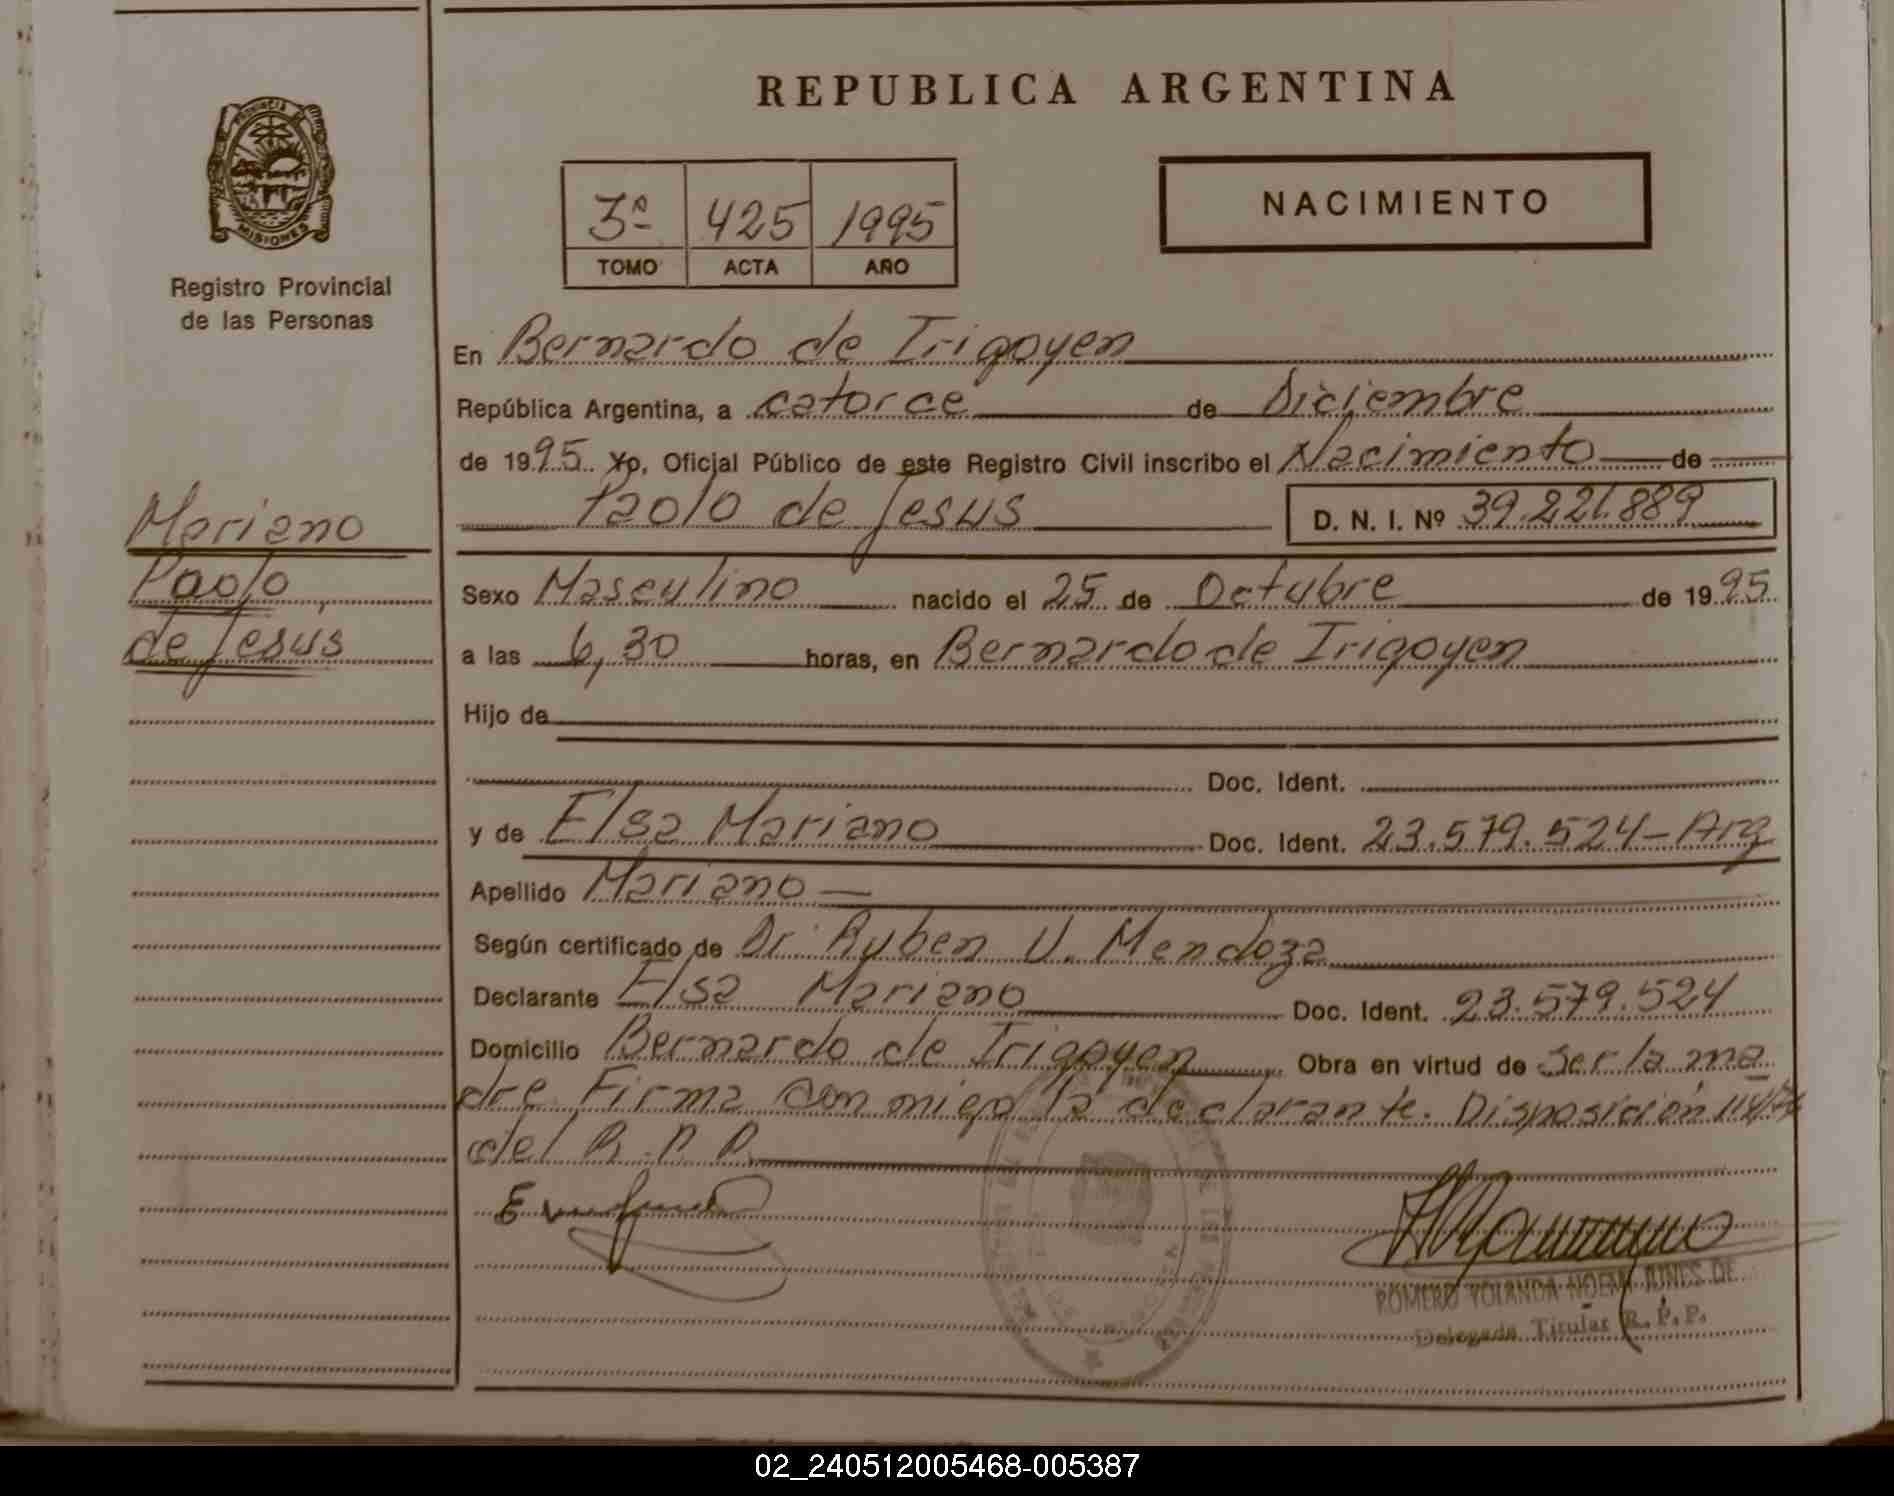 REPUBLICA ARGENTINA
PROVINCIA DE
MISIONES
Registro Provincial
de las Personas
3º 425 1995
TOMO ACTA AÑO
NACIMIENTO
En Bernardo de Irigoyen
República Argentina, a catorce de Diciembre
de 1995 Yo, Oficial Público de este Registro Civil inscribo el Nacimiento de
Paolo de Jesus D. N. I. Nº 39.221.889
Mariano
Paolo
de Jesus
Sexo Masculino nacido el 25 de Octubre de 1995
a las 6,30 horas, en Bernardo de Irigoyen
Hijo de
Doc. Ident.
y de Elsa Mariano Doc. Ident. 23.579.524-Arg
Apellido Mariano
Según certificado de Dr. Ruben V. Mendoza
Declarante Elsa Mariano Doc. Ident. 23.579.524
Domicilio Bernardo de Irigoyen Obra en virtud de ser la ma
dre. Firma con migo la declarante. Disposición
del R.P.P.
ROMERO YOLANDA NOEMI DE
Delegada Titular R. P. P.
02_240512005468-005387